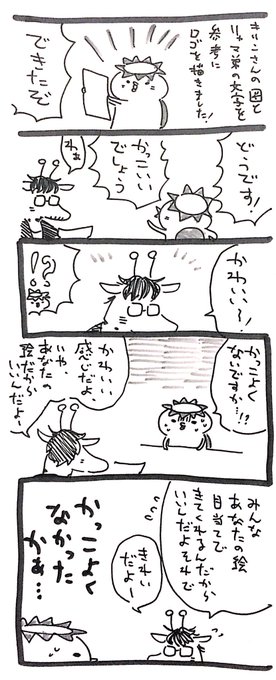 さんの図と
の文字を
参考に
ロゴを描きました!
できたぞ
どうです!
かっこいい
でしょう
わぁ
かわいい〜!
!?
かっこよく
ないですか…!!
かわいい
感じだよ
いや、
あなたの
絵だから
いいんだよ〜
みんな
あなたの絵
目当てで
きてくれるんだから
いいんだよそれで
きれい
だよー
かっこよく
なかった
かぁ…